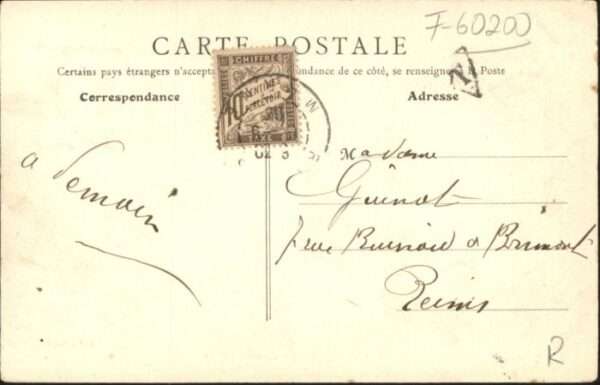 F-60200
CARTE POSTALE
Certains pays étrangers n'accepta dance de ce côté, se renseigne Poste
Correspondance
Adresse
CHIFFRE
10 CENTIMES
TAXE
M
T
a demain
Madame
Guénot
7 rue de
Reims
R